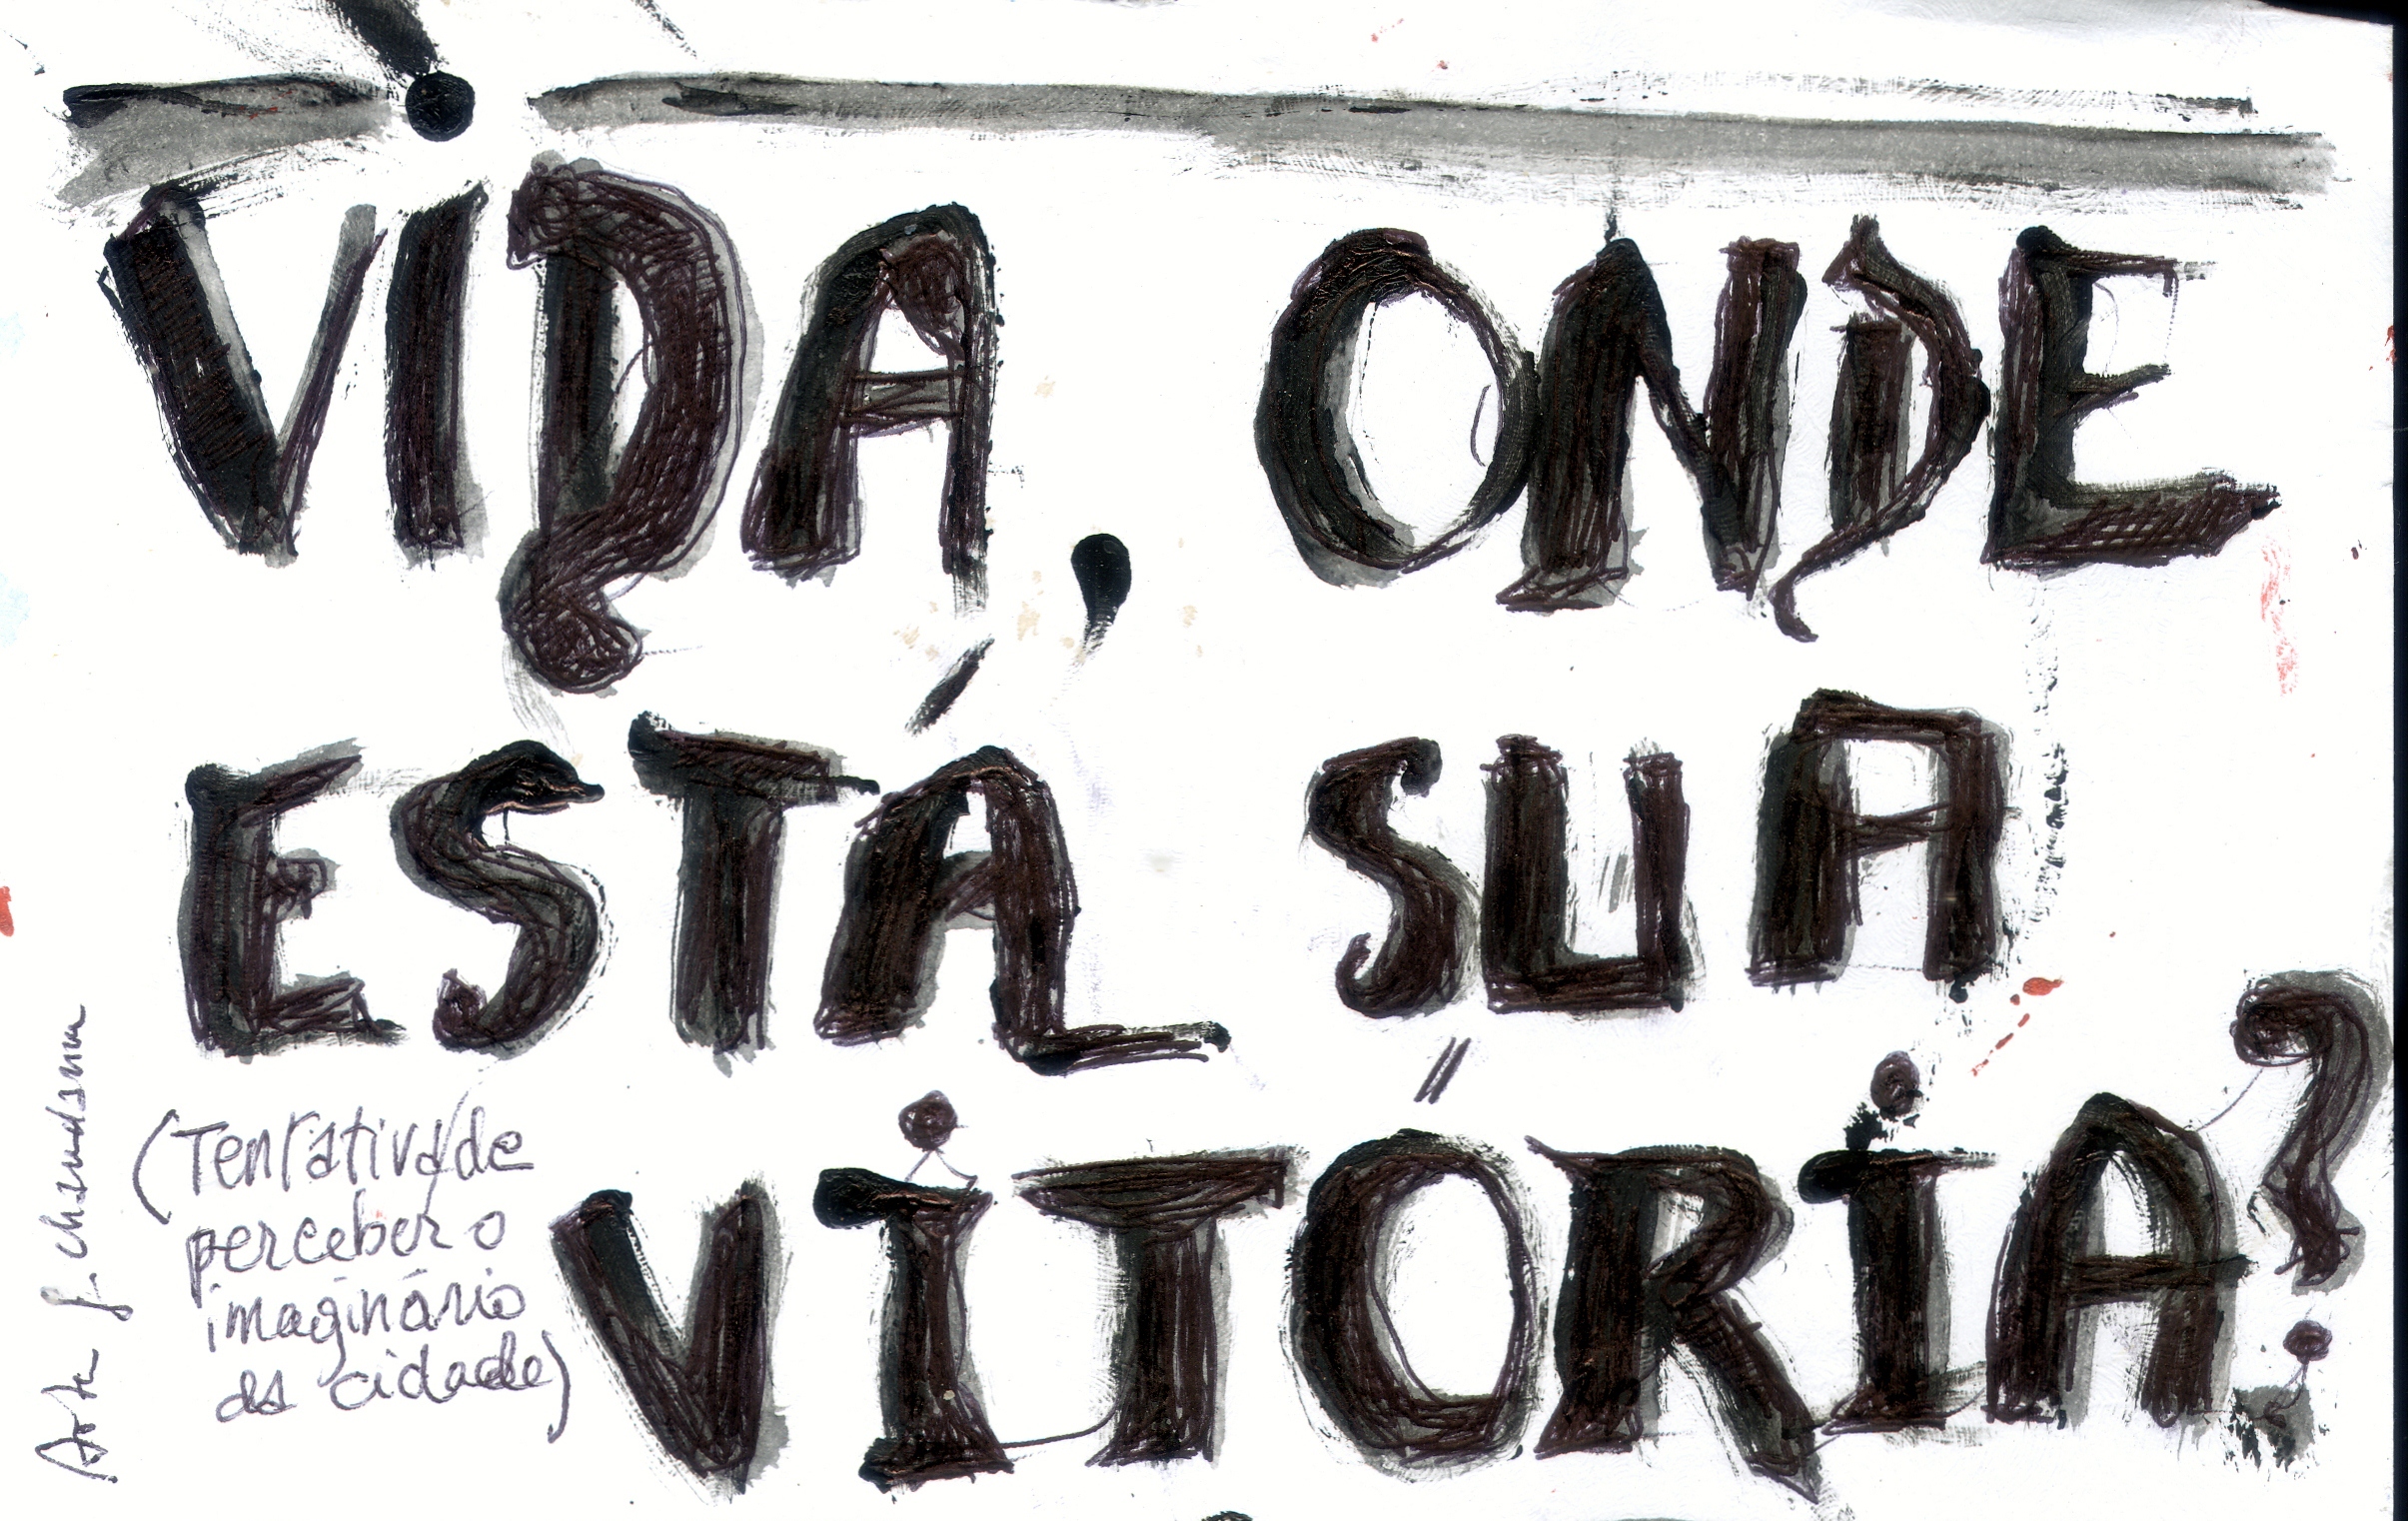 VIDA, ONDE
ESTÁ SUA
VITÓRIA?
(Tentativa de
perceber o
imaginário
da cidade)
Arte